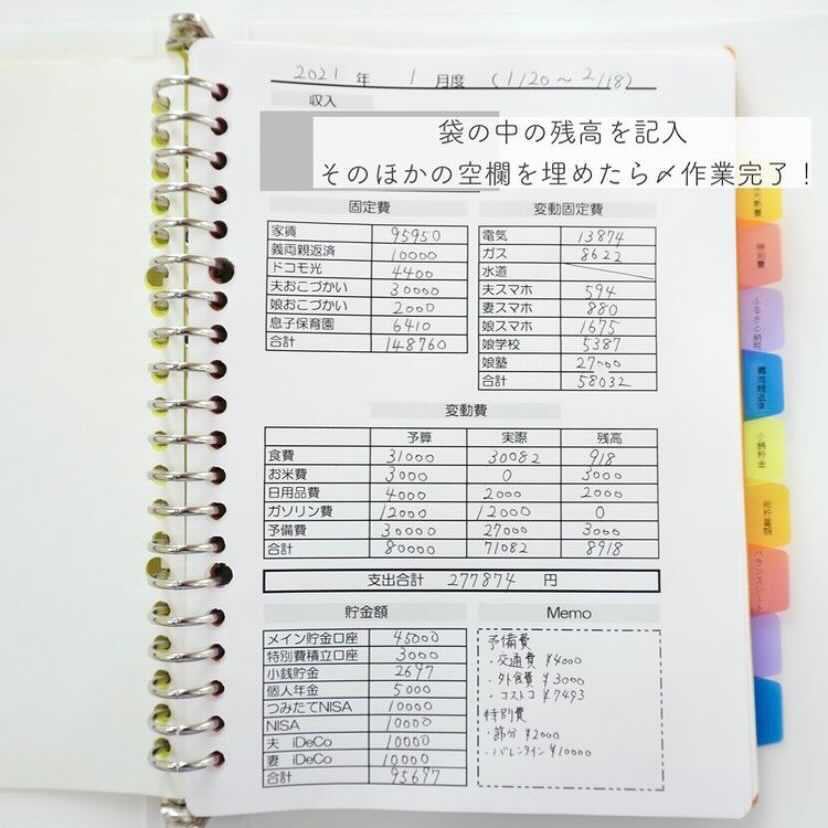 2021 年 1 月度 (1/20〜2/18)
収入
袋の中の残高を記入
そのほかの空欄を埋めたら〆作業完了!
固定費
家賃 95950
義両親返済 10000
ドコモ光 4400
夫おこづかい 30000
娘おこづかい 2000
息子保育園 6410
合計 148760
変動固定費
電気 13874
ガス 8622
水道
夫スマホ 594
妻スマホ 880
娘スマホ 1675
娘学校 5387
娘塾 27000
合計 58032
変動費
予算 実際 残高
食費 31000 30082 918
お米費 3000 0 3000
日用品費 4000 2000 2000
ガソリン費 12000 12000 0
予備費 30000 27000 3000
合計 80000 71082 8918
支出合計 277874 円
貯金額
メイン貯金口座 45000
特別費積立口座 3000
小銭貯金 2697
個人年金 5000
つみたてNISA 10000
NISA 10000
夫 iDeCo 10000
妻 iDeCo 10000
合計 95697
Memo
予備費
・交通費 ¥4000
・外食費 ¥3000
・コストコ ¥7493
特別費
・節分 ¥2000
・バレンタイン ¥10000
特別費
ふるさと納税
義両親返済
小銭貯金
バランスシート